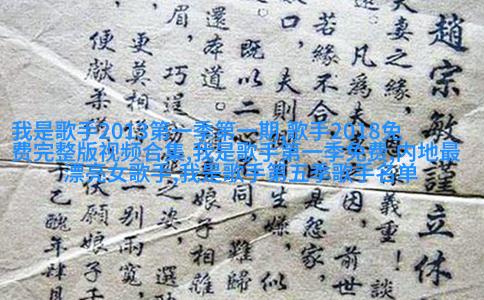 我是歌手2013第一季第一期,歌手2018免
费完整版视频合集,我是歌手第一季免费,内地最
漂亮女歌手,我是歌手第五季歌手名单
趙宗敏謹立休
夫妻之緣, 義重!談
凡為夫 因,前世
若緣不合 是怨家,
口,夫則 生嫌,似
既以二 同,難歸
還本道。 子相離
眉,巧逞 之姿,選
更莫相 一别兩寬,
便獻柔 伏願娘子千
于乙醜年肆月